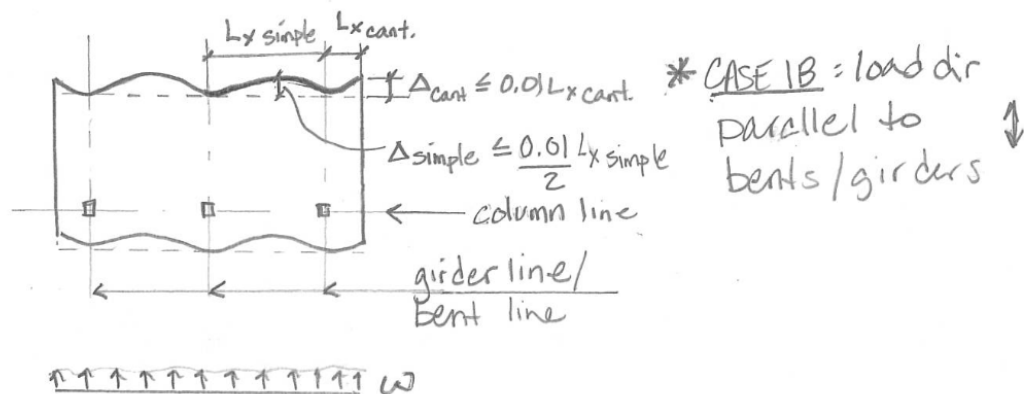 Lx simple
Lx cant.
Δcant ≤ 0.01 Lx cant.
Δsimple ≤ 0.01/2 Lx simple
column line
girder line/
bent line
ω
* CASE 1B : load dir
parallel to
bents/girders